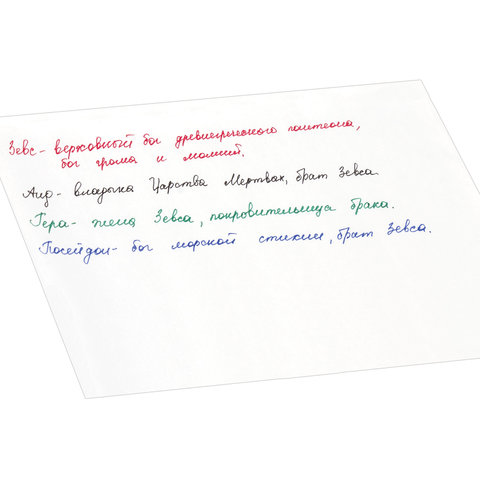 Зевс - верховный бог древнегреческого пантеона,
бог грома и молний.
Аид - владыка Царства Мертвых, брат Зевса.
Гера - жена Зевса, покровительница брака.
Посейдон - бог морской стихии, брат Зевса.